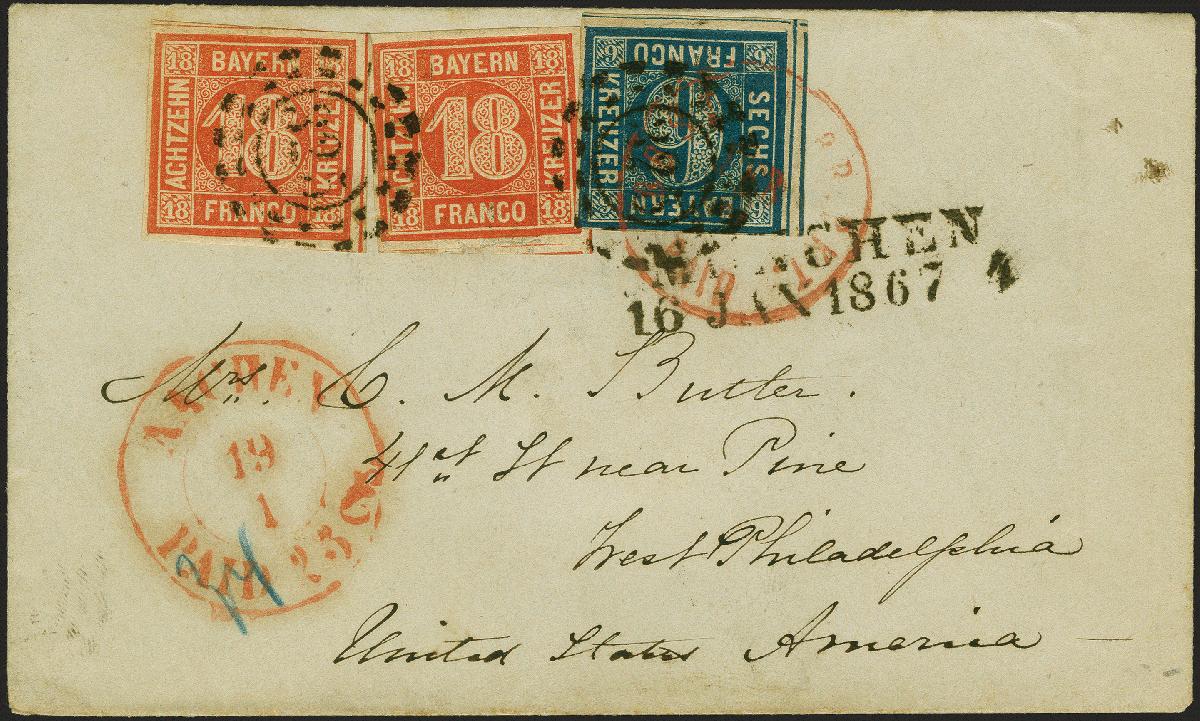 18 BAYERN 18
ACHTZEHN 18 KREUZER
18 FRANCO 18
18 BAYERN 18
ACHTZEHN 18 KREUZER
18 FRANCO 18
6 FRANCO 6
KREUZER 6 SECHS
6 BAYERN 6
MÜNCHEN
16 JAN 1867
AACHEN
19
1
PAID 25 C
24
Mrs. C. M. Butler.
41st St near Pine
West Philadelphia
United States America